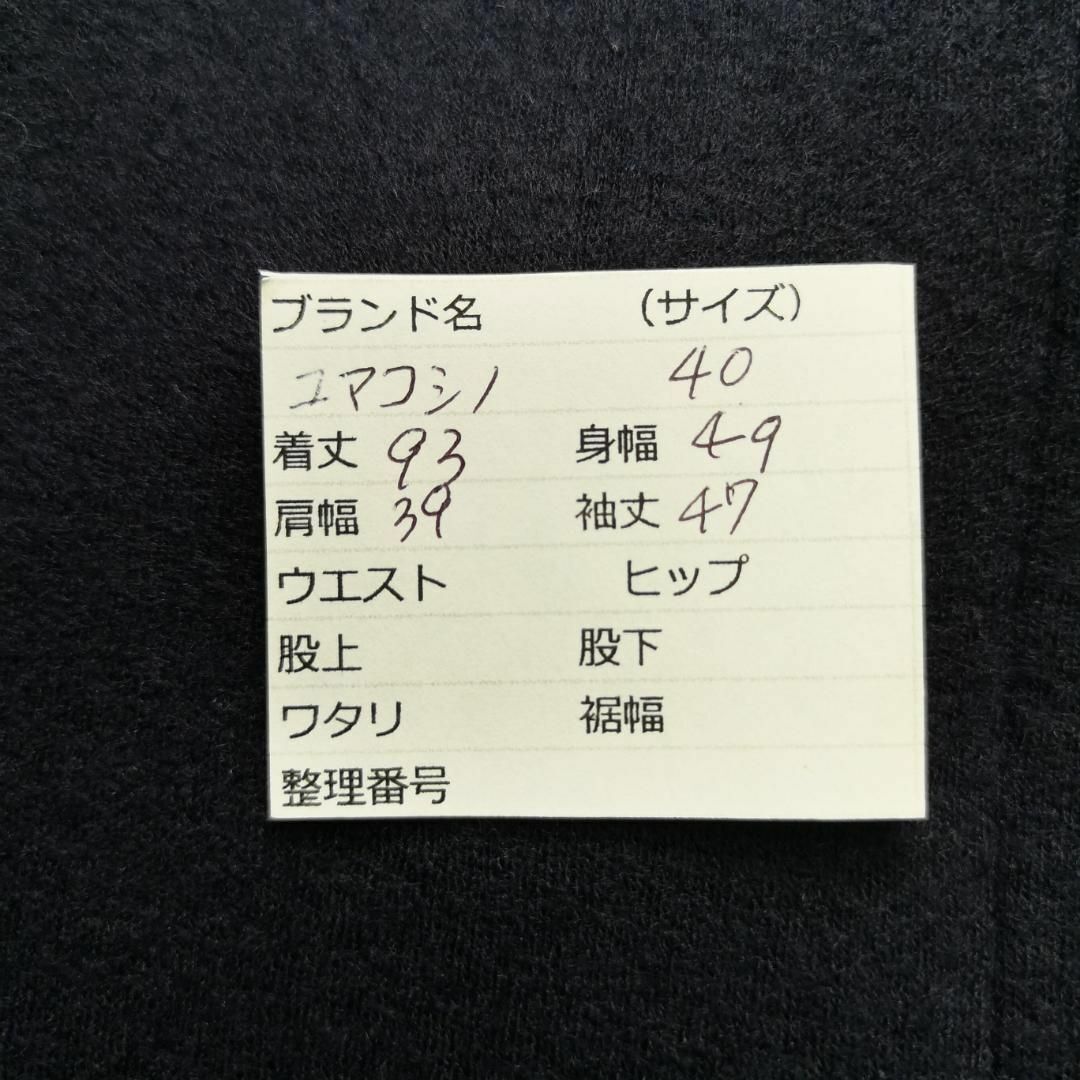 ブランド名 （サイズ）
ユマコシノ 40
着丈 93 身幅 49
肩幅 39 袖丈 47
ウエスト ヒップ
股上 股下
ワタリ 裾幅
整理番号